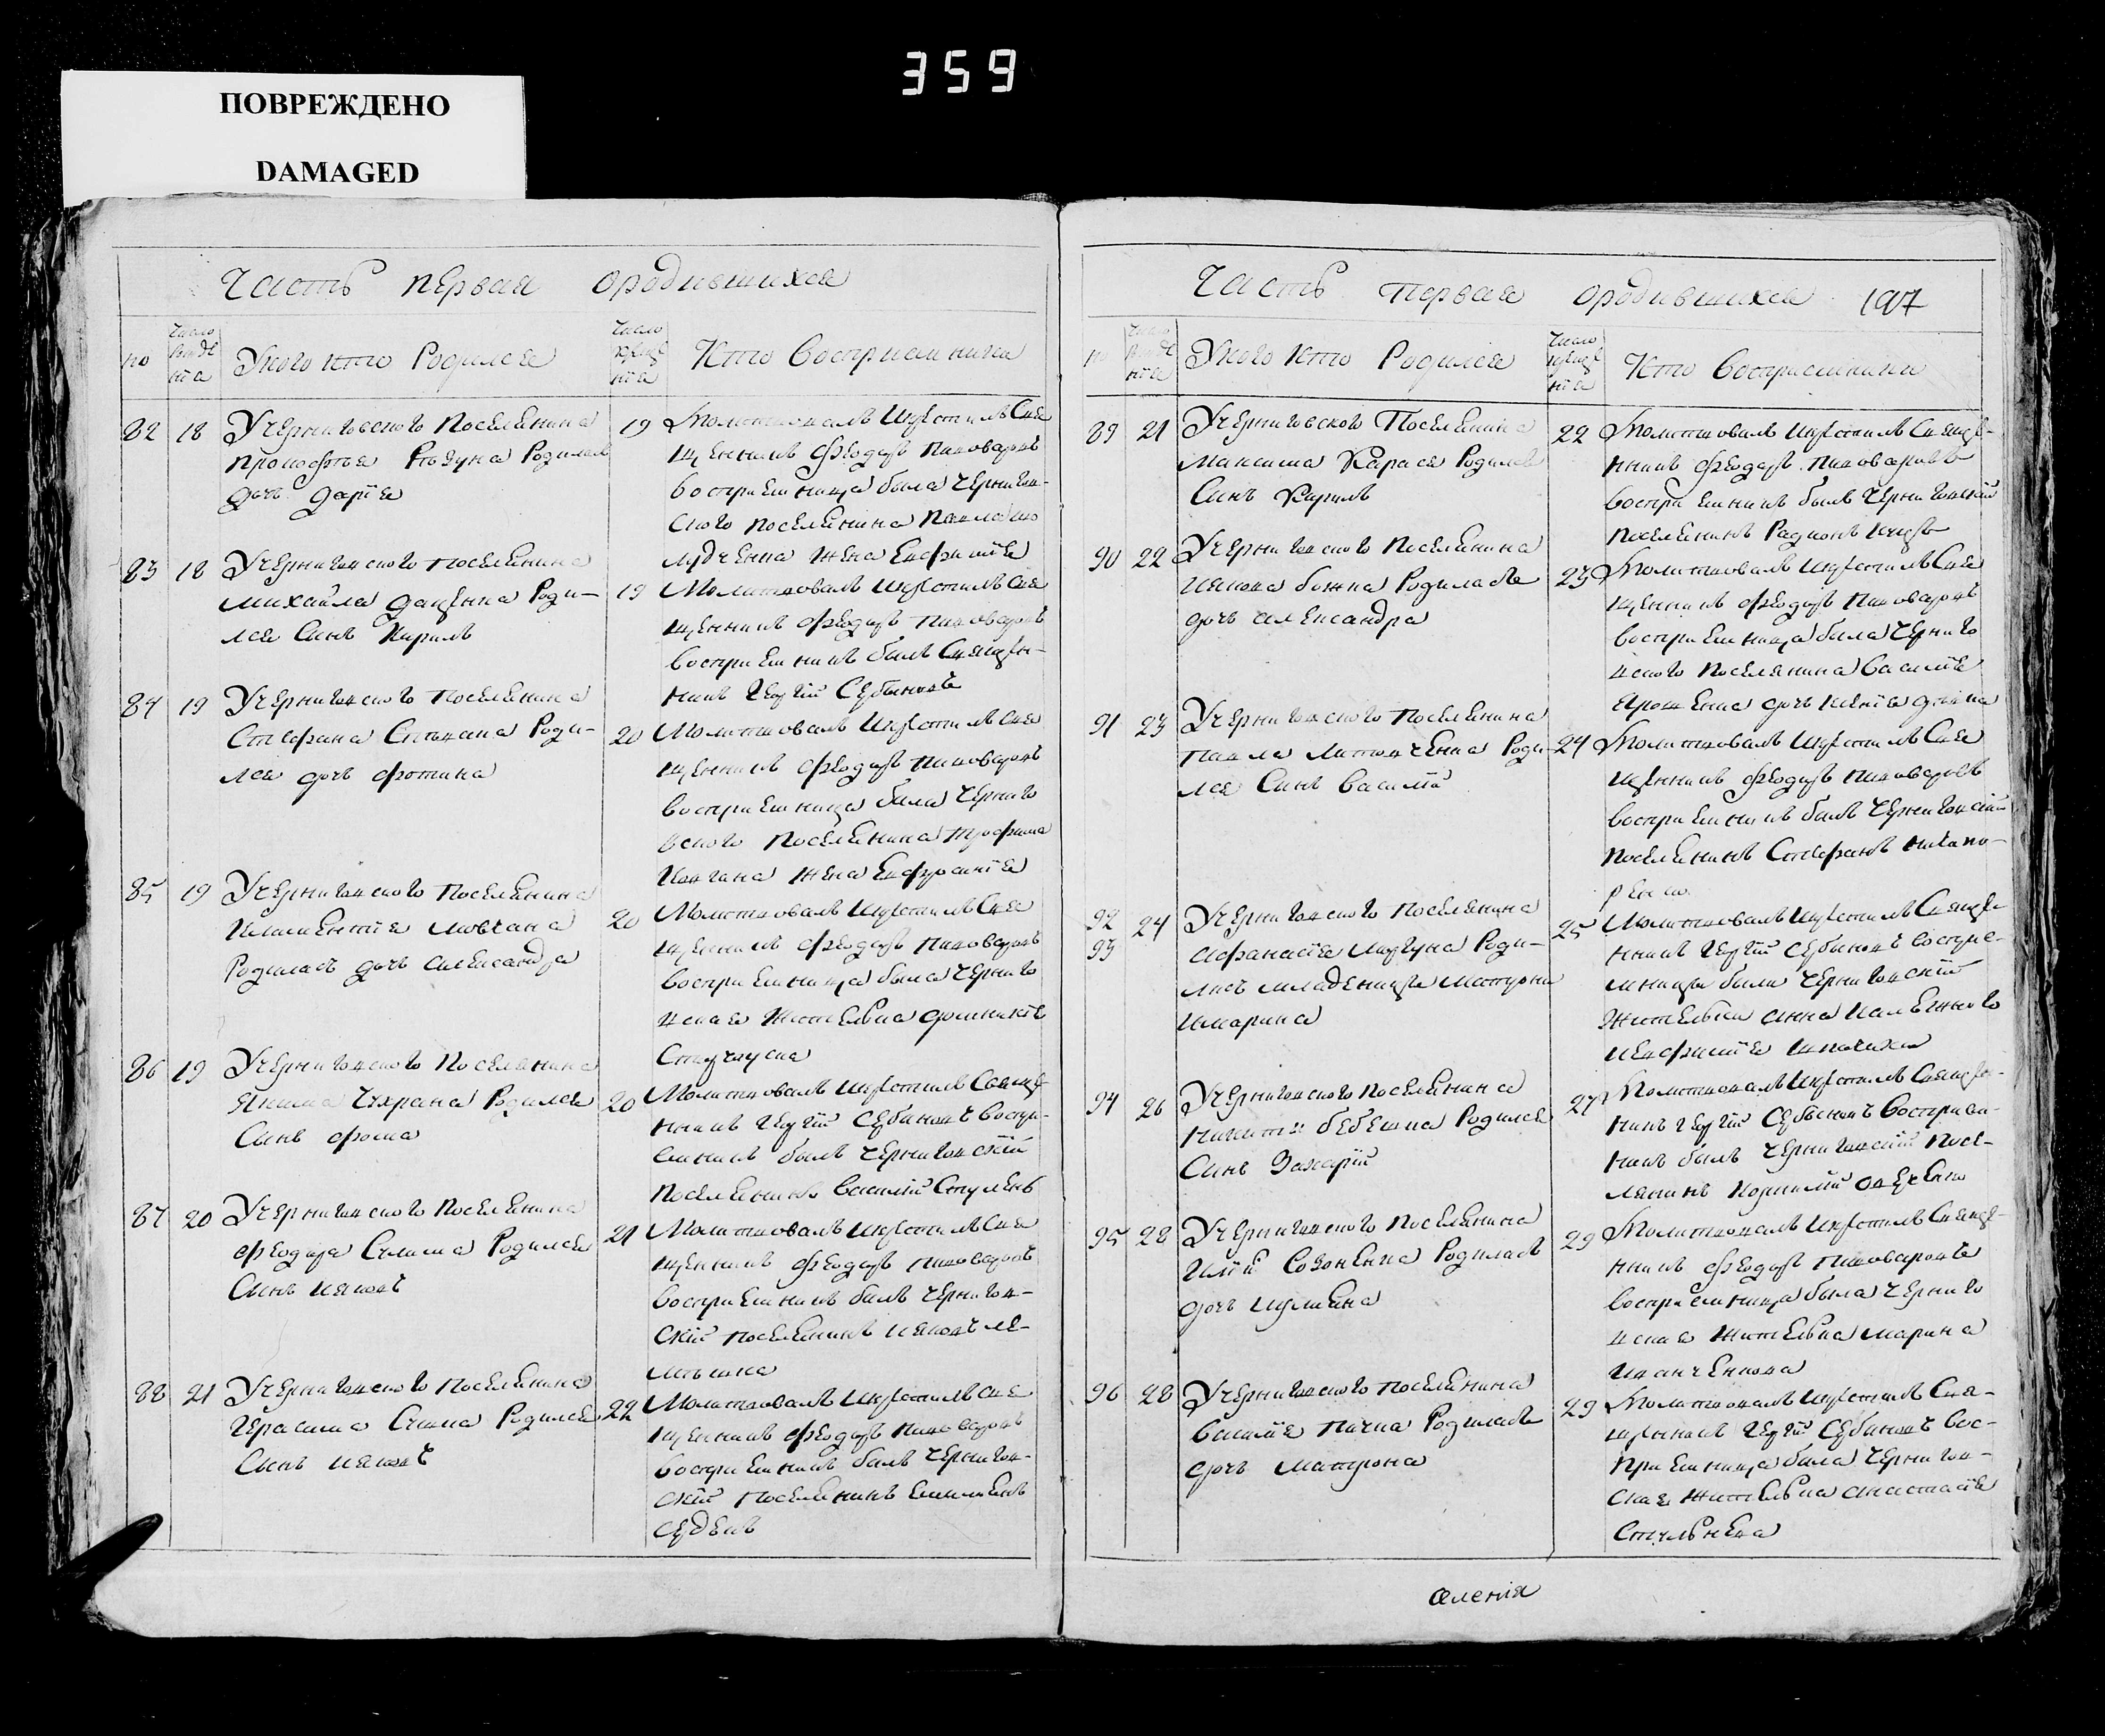 359
ПОВРЕЖДЕНО
DAMAGED
Часть первая ородившихся
но
число
рожде
нїя
Укого кто Родился
число
креще
нїя
Кто восприемники
82 18 Учерниговского поселянина
Прокофїя Родилась
дочь Дарїя
19 Молитвовалъ икрестилъ Свя
щенникъ Феодоръ Пивоваровъ
восприемница была чернигов-
ского поселянина Павла
жена Евфимїя
83 18 Учерниговского поселянина
Михайла Роди-
лся Синъ Кирилъ
19 Молитвовалъ икрестилъ Свя
щенникъ Феодоръ Пивоваровъ
восприемникъ билъ Священ-
никъ Георгїй Сербиновъ
84 19 Учерниговского поселянина
Стефана Роди-
лся дочь Фотина
20 Молитвовалъ икрестилъ Свя
щенникъ Феодоръ Пивоваровъ
восприемница била черниго
вского поселянина Трофима
жена Евфросинїя
85 19 Учерниговского поселянина
Климентїя
Родилась дочь Александра
20 Молитвовалъ икрестилъ Свя
щенникъ Феодоръ Пивоваровъ
восприемница была черниго
вская жителька
86 19 Учерниговского поселянина
Якима Родился
Синъ Фома
20 Молитвовалъ икрестилъ Свяще
нникъ Георгїй Сербиновъ воспри-
емникъ былъ черниговскїй
поселянинъ Василїй
87 20 Учерниговского поселянина
Феодора Родился
Сынъ Яковъ
21 Молитвовалъ икрестилъ Свя
щенникъ Феодоръ Пивоваровъ
восприемникъ билъ чернигов-
скїй поселянинъ Яковъ
88 21 Учерниговского поселянина
Герасима Родился
Сынъ Яковъ
22 Молитвовалъ икрестилъ Свя
щенникъ Феодоръ Пивоваровъ
восприемникъ билъ чернигов-
скїй поселянинъ Емилїянъ
Часть первая ородившихся 197
но
число
рожде
нїя
Укого кто Родился
число
креще
нїя
Кто восприемники
89 21 Учерниговского Поселянина
Максима Карася Родился
Синъ Карилъ
22 Молитвовалъ икрестилъ Свяще-
нникъ Феодоръ Пивоваровъ
восприемникъ былъ черниговскїй
поселянинъ Радионъ
90 22 Учерниговского поселянина
Якова Божка Родилася
дочь Александра
23 Молитвовалъ икрестилъ Свя
щенникъ Феодоръ Пивоваровъ
восприемница била черниго
вского поселянина Василїя
дочь
91 23 Учерниговского поселянина
Павла Литовченка Роди-
лся Синъ Василїй
24 Молитвовалъ икрестилъ Свя
щенникъ Феодоръ Пивоваровъ
восприемникъ билъ черниговскїй
поселянинъ Стефанъ
92
93
24 Учерниговского поселянина
Афанасїя Роди-
лись младенцы Матрона
иМарина
25 Молитвовалъ икрестилъ Свяще-
нникъ Георгїй Сербиновъ воспрїе-
мницы были черниговскїй
жительки Анна
94 26 Учерниговского поселянина
Никиты Бебешка Родился
Синъ Захарїй
27 Молитвовалъ икрестилъ Священ-
никъ Георгїй Сербиновъ восприем-
никъ былъ черниговскїй посе-
лянинъ Корнилїй
95 28 Учерниговского поселянина
Илїи Созоненка Родилась
дочь Иулияна
29 Молитвовалъ икрестилъ Свяще-
нникъ Феодоръ Пивоваровъ
восприемница была черниго
вская жителька Марина
Иванченкова
96 28 Учерниговского поселянина
Василїя Родилась
дочь Матрона
29 Молитвовалъ икрестилъ Свя-
щенникъ Георгїй Сербиновъ вос-
приемница била чернигов-
ская жителька Анастасїя